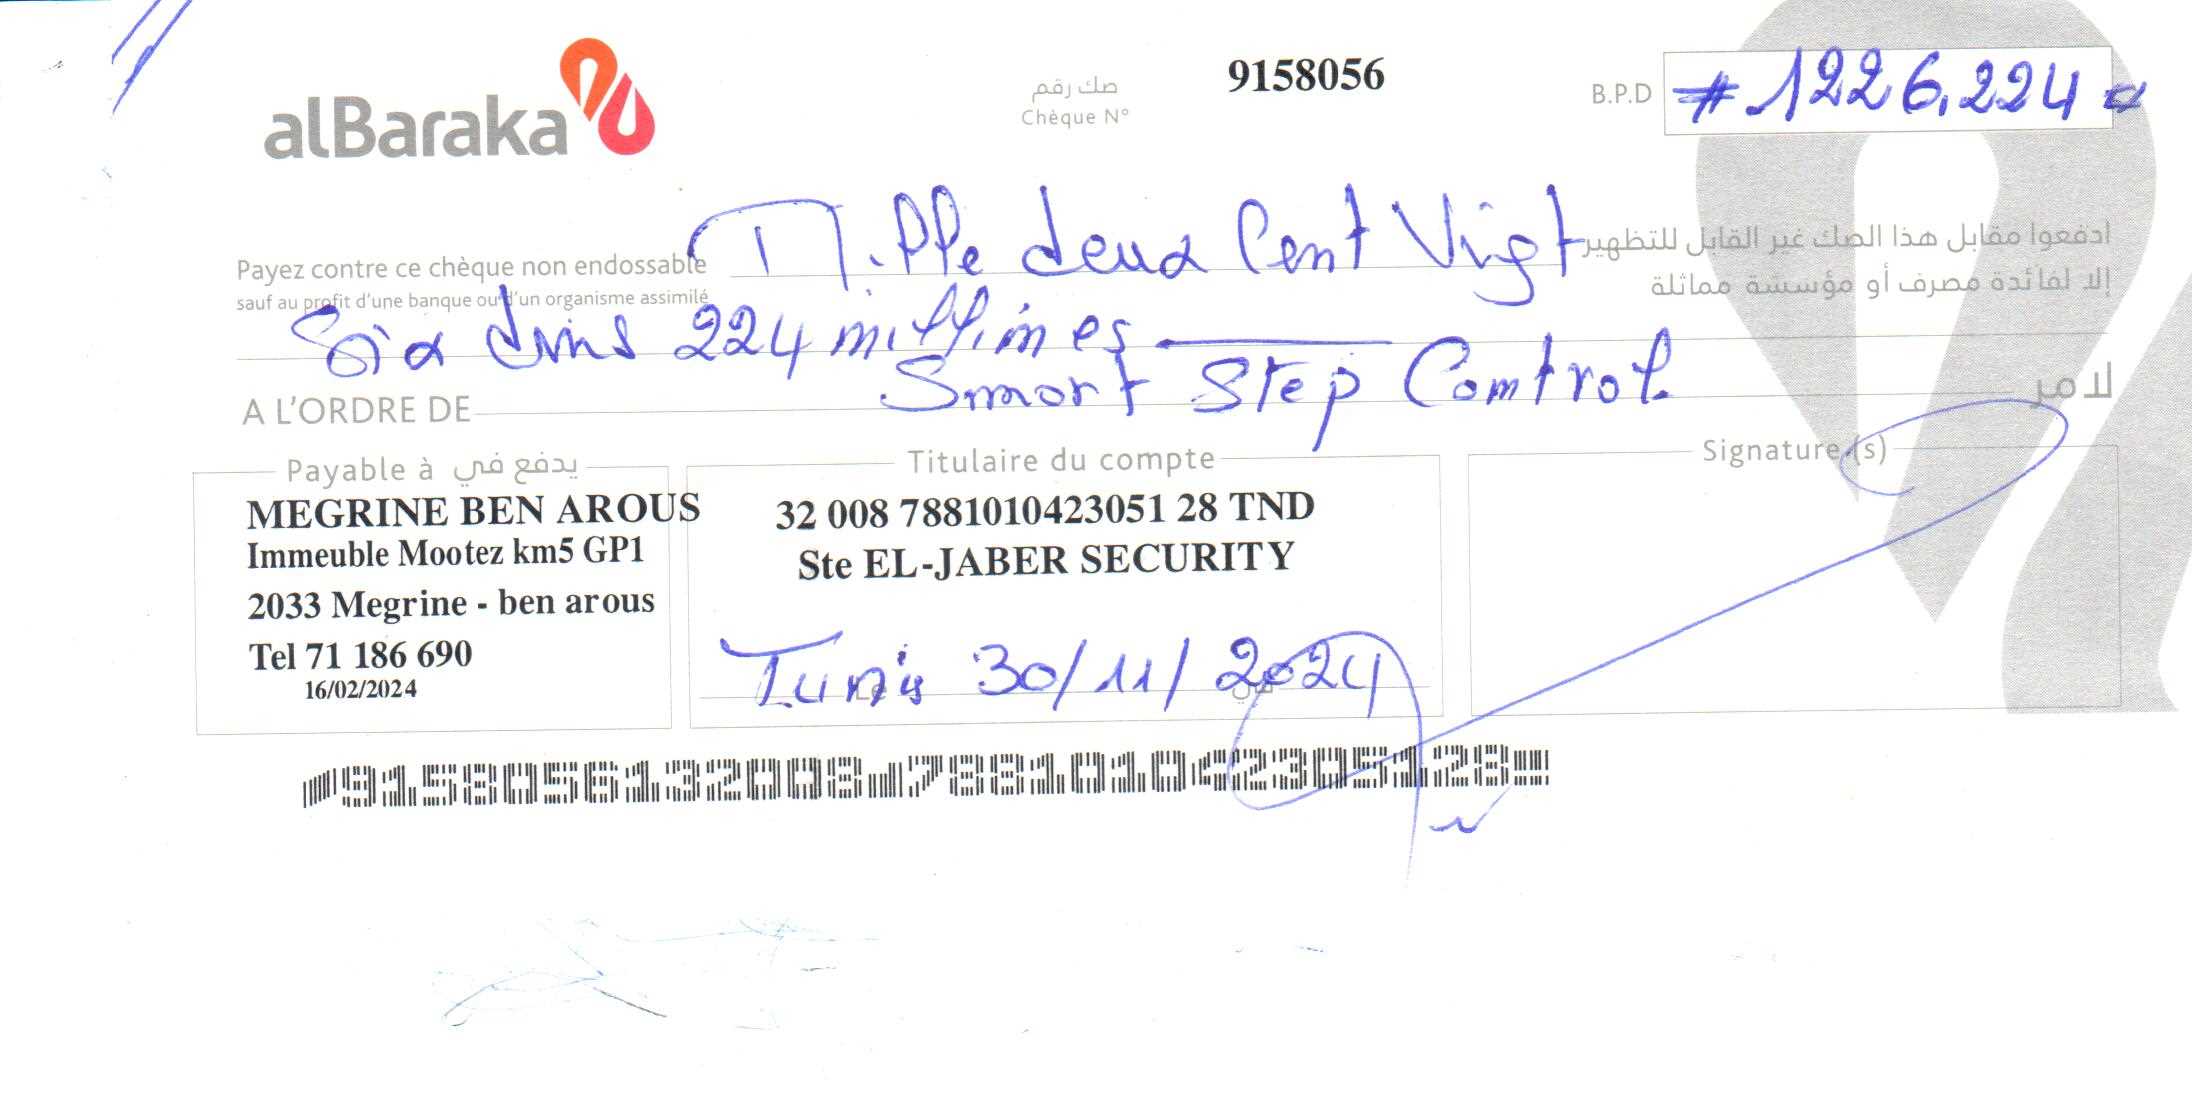 alBaraka
صك رقم
Chèque N°
9158056
B.P.D
# 1226,224 #
Mille deux Cent Vigt
Payez contre ce chèque non endossable
sauf au profit d'une banque ou d'un organisme assimilé
ادفعوا مقابل هذا الصك غير القابل للتظهير
إلا لفائدة مصرف أو مؤسسة مماثلة
Six dins 224 millimes
A L'ORDRE DE
Smart Step Control.
لامر
Payable à يدفع في
MEGRINE BEN AROUS
Immeuble Mootez km5 GP1
2033 Megrine - ben arous
Tel 71 186 690
16/02/2024
Titulaire du compte
32 008 7881010423051 28 TND
Ste EL-JABER SECURITY
Tunis 30/11/2024
Le في
Signature (s)
9158056132008 788101042305128